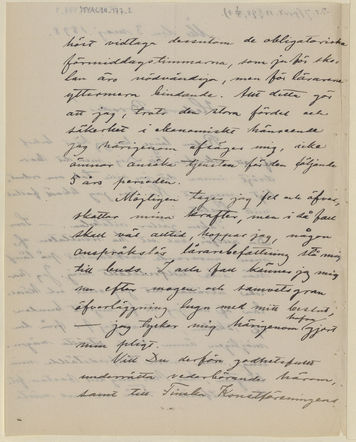 höst vidtaga dessutom de obligatoriska
förmiddagstimmarna, som ju för sko-
lan äro nödvändiga, men för läraren
ytterimera bindande. Allt detta gör
att jag, trots den stora fördel och
säkerhet i ekonomiskt hänseende
jag härigenom afsäger mig, icke
ämnar ansöka tjensten för den följande
5 års perioden.
Möjligen tager jag fel och öfver-
skattar mina krafter, men i så fall
skall väl alltid, hoppas jag, någon
anspråkslös lärarebefattning stå mig
till buds. I alla fall känner jag mig
nu efter mogen och samvetsgran
öfverläggning lugn med mitt beslut,
— jag tycker mig härigenom hafva gjort
min pligt.
Vill Du derför godhetsfullt
underrätta vederbörande härom,
samt till Finska Konstföreningens